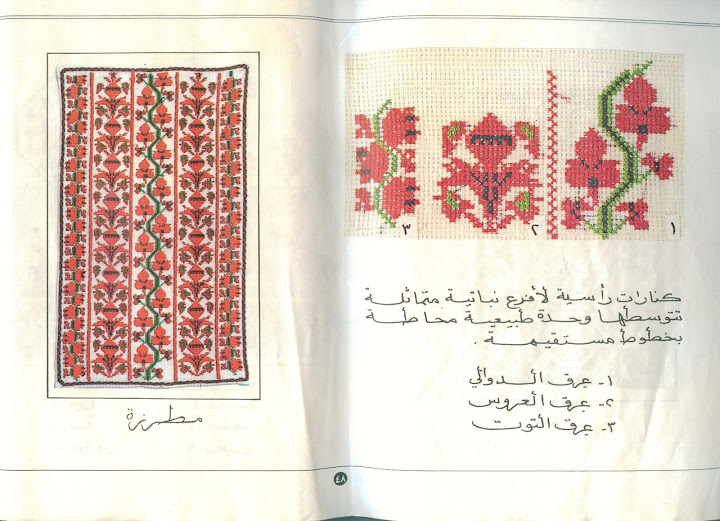 ١
٢
٣
كنارات رأسية لأفرع نباتية متماثلة
تتوسطها وحدة طبيعية محاطة
بخطوط مستقيمة .
١- عرق الدوالي
٢- عرق العروس
٣- عرق التوت
مطرزة
٤٨